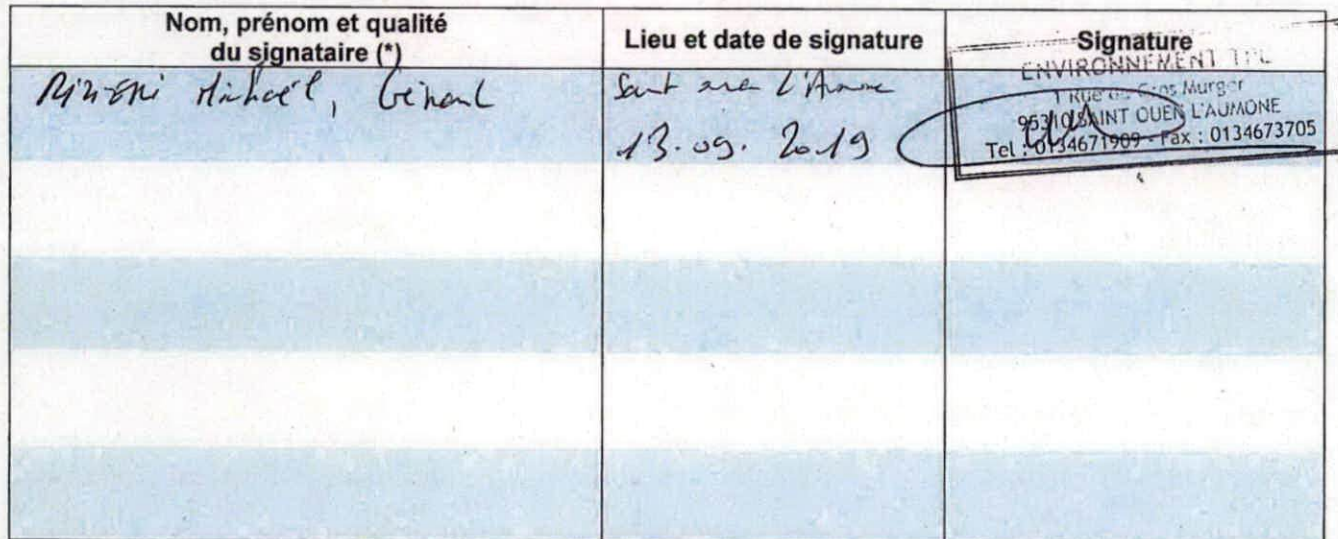 Nom, prénom et qualité
du signataire (*)
Lieu et date de signature
Signature
Michaël, Gérant
Saint L'Aumone
13.09.2019
ENVIRONNEMENT
1 Rue du Gros Murger
95310 SAINT OUEN L'AUMONE
Tel : 0134671909 - Fax : 0134673705